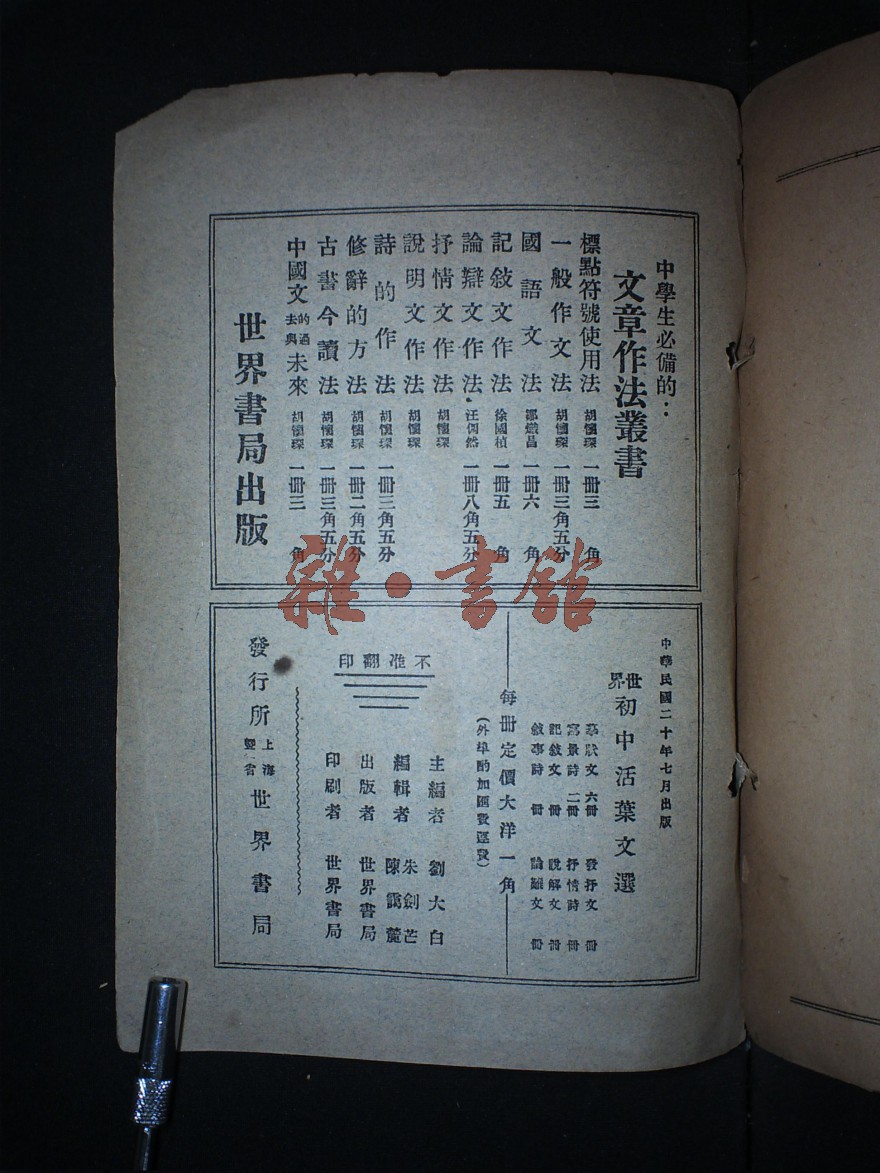 中學生必備的：
文章作法叢書
標點符號使用法 胡懷琛 一冊三角
一般作文法 胡懷琛 一冊三角五分
國語文法 鄒熾昌 一冊六角
記敍文作法 徐國楨 一冊五角
論辯文作法 汪倜然 一冊八角五分
抒情文作法 胡懷琛
說明文作法 胡懷琛
詩的作法 胡懷琛 一冊三角五分
修辭的方法 胡懷琛 一冊二角五分
古書今讀法 胡懷琛 一冊三角五分
中國文的過去與未來 胡懷琛 一冊三角
世界書局出版
雜·書館
中華民國二十年七月出版
世界初中活葉文選
摹狀文 六冊 發抒文 冊
寫景詩 二冊 抒情詩 冊
記敍文 冊 說解文 冊
敍事詩 冊 論辯文 冊
每冊定價大洋一角
(外埠酌加匯費運費)
不准翻印
主編者 劉大白
編輯者 朱劍芒 陳靄麓
出版者 世界書局
印刷者 世界書局
發行所 上海暨各省 世界書局